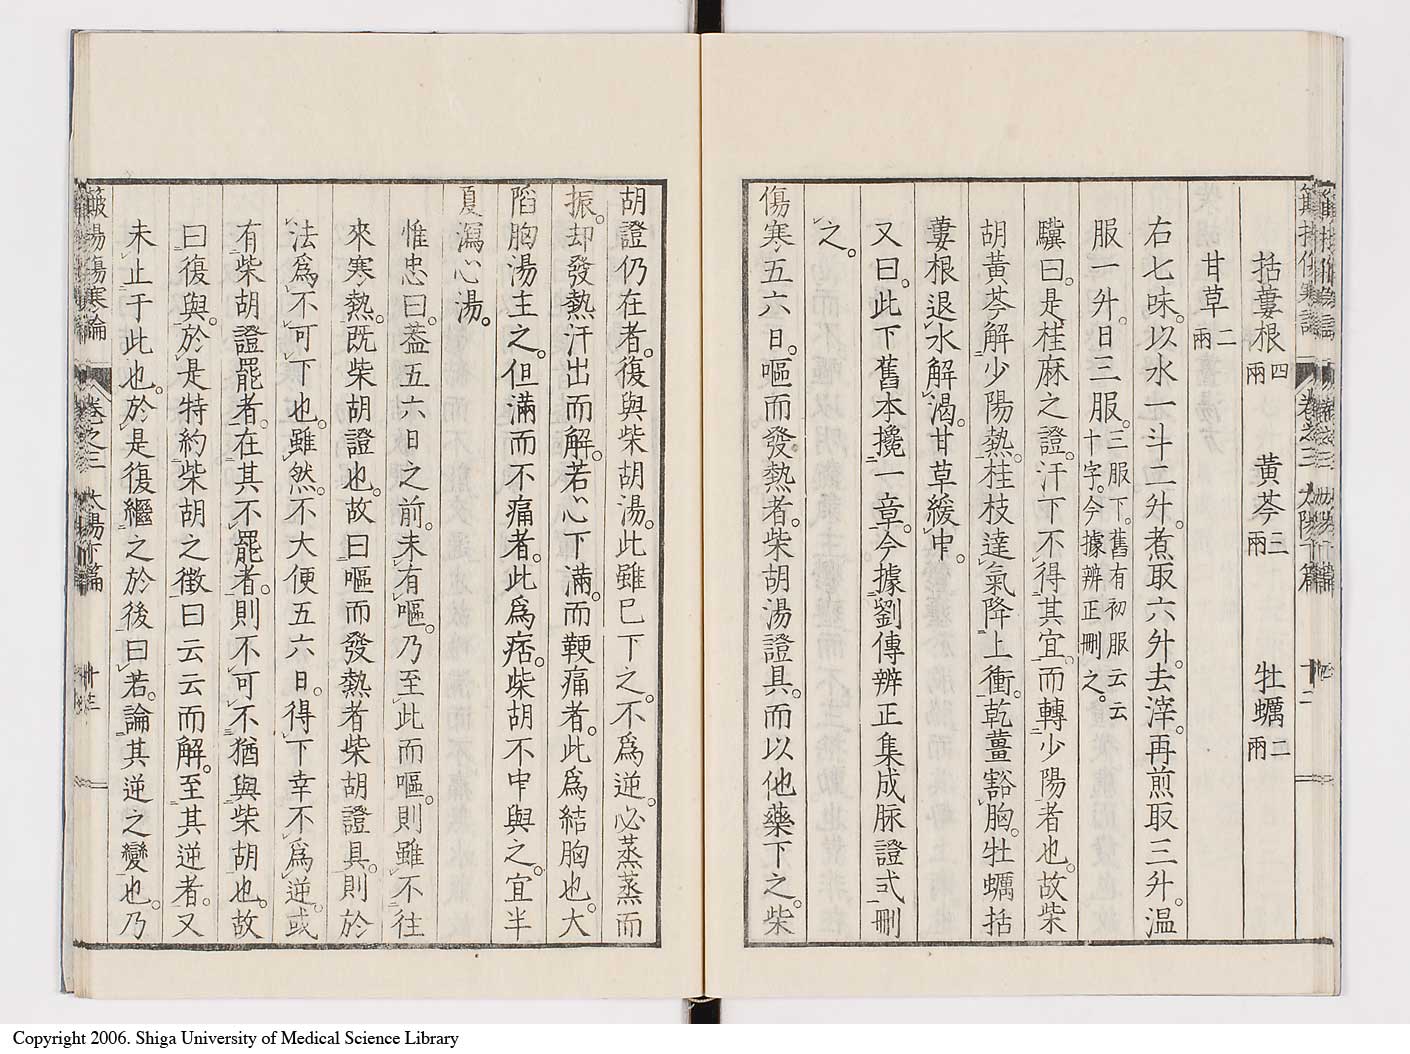 括蔞根四兩 黃芩三兩 牡蠣二兩
甘草二兩
右七味。以水一斗二升。煮取六升。去滓。再煎取三升。溫
服一升。日三服。三服下。舊有初服云云十字。今據辨正刪之。
驥曰。是桂麻之證。汗下不得其宜。而轉少陽者也。故柴
胡黃芩解少陽熱。桂枝達氣降上衝。乾薑豁胸。牡蠣括
蔞根退水解渴。甘草緩中。
又曰。此下舊本攙一章。今據劉傳辨正集成脈證式刪
之。
傷寒五六日。嘔而發熱者。柴胡湯證具。而以他藥下之。柴
胡證仍在者。復與柴胡湯。此雖已下之。不爲逆。必蒸蒸而
振。却發熱汗出而解。若心下滿。而鞕痛者。此爲結胸也。大
陷胸湯主之。但滿而不痛者。此爲痞。柴胡不中與之。宜半
夏瀉心湯。
惟忠曰。蓋五六日之前。未有嘔。乃至此而嘔。則雖不往
來寒熱。既柴胡證也。故曰嘔而發熱者柴胡證具。則於
法爲不可下也。雖然。不大便五六日。得下幸不爲逆。或
有柴胡證罷者。在其不罷者。則不可不猶與柴胡也。故
曰復與。於是特約柴胡之徵曰云云而解。至其逆者。又
未止于此也。於是復繼之於後曰若。論其逆之變也。乃
傷寒論 卷之三 太陽下篇 十三
Copyright 2006. Shiga University of Medical Science Library